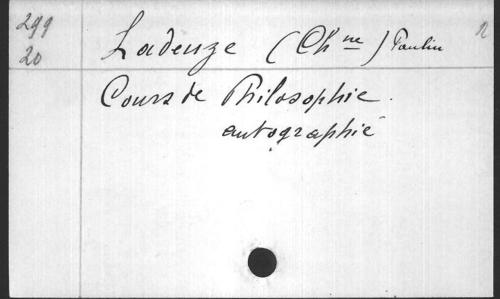 299
20
Ladeuze (Ch^ne) Paulin
Cours de Philosophie.
autographié